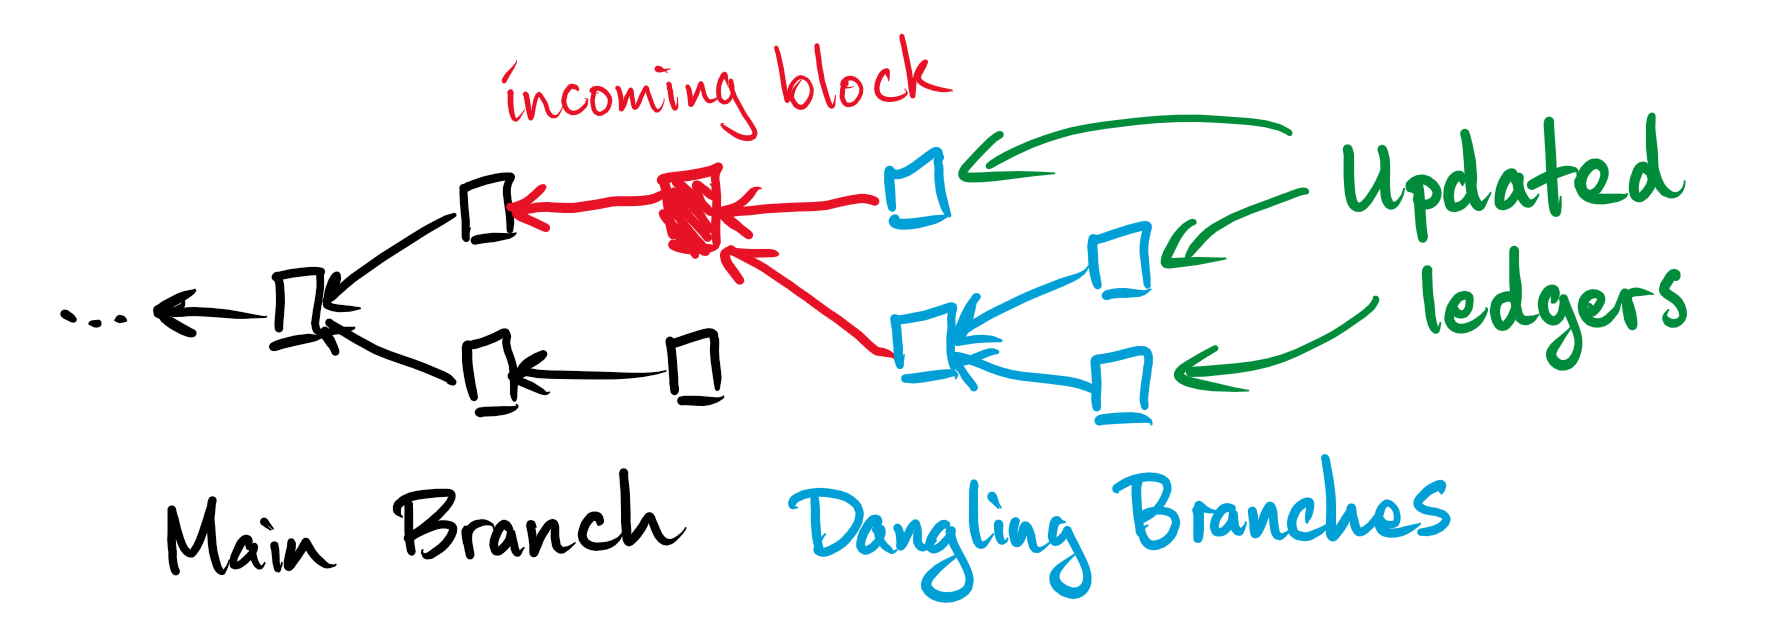 incoming block
Updated
ledgers
...
Main Branch
Dangling Branches